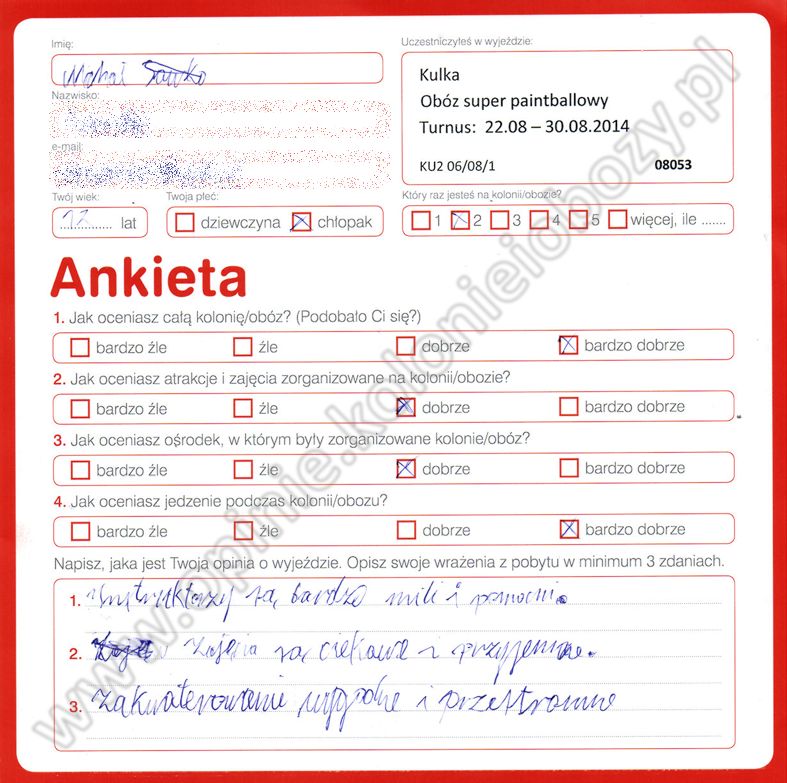 Imię:
Michał
Nazwisko:
e-mail:
Twój wiek:
12 lat
Twoja płeć:
dziewczyna chłopak
Uczestniczyłeś w wyjeździe:
Kulka
Obóz super paintballowy
Turnus: 22.08 – 30.08.2014
KU2 06/08/1 08053
Który raz jesteś na kolonii/obozie?
1 2 3 4 5 więcej, ile .......
Ankieta
1. Jak oceniasz całą kolonię/obóz? (Podobało Ci się?)
bardzo źle źle dobrze bardzo dobrze
2. Jak oceniasz atrakcje i zajęcia zorganizowane na kolonii/obozie?
bardzo źle źle dobrze bardzo dobrze
3. Jak oceniasz ośrodek, w którym były zorganizowane kolonie/obóz?
bardzo źle źle dobrze bardzo dobrze
4. Jak oceniasz jedzenie podczas kolonii/obozu?
bardzo źle źle dobrze bardzo dobrze
Napisz, jaka jest Twoja opinia o wyjeździe. Opisz swoje wrażenia z pobytu w minimum 3 zdaniach.
1. Instruktorzy są bardzo mili i pomocni.
2. Zajęcia są ciekawe i przyjemne.
3. Zakwaterowanie wygodne i przestronne
www.opinie.kolonieiobozy.pl